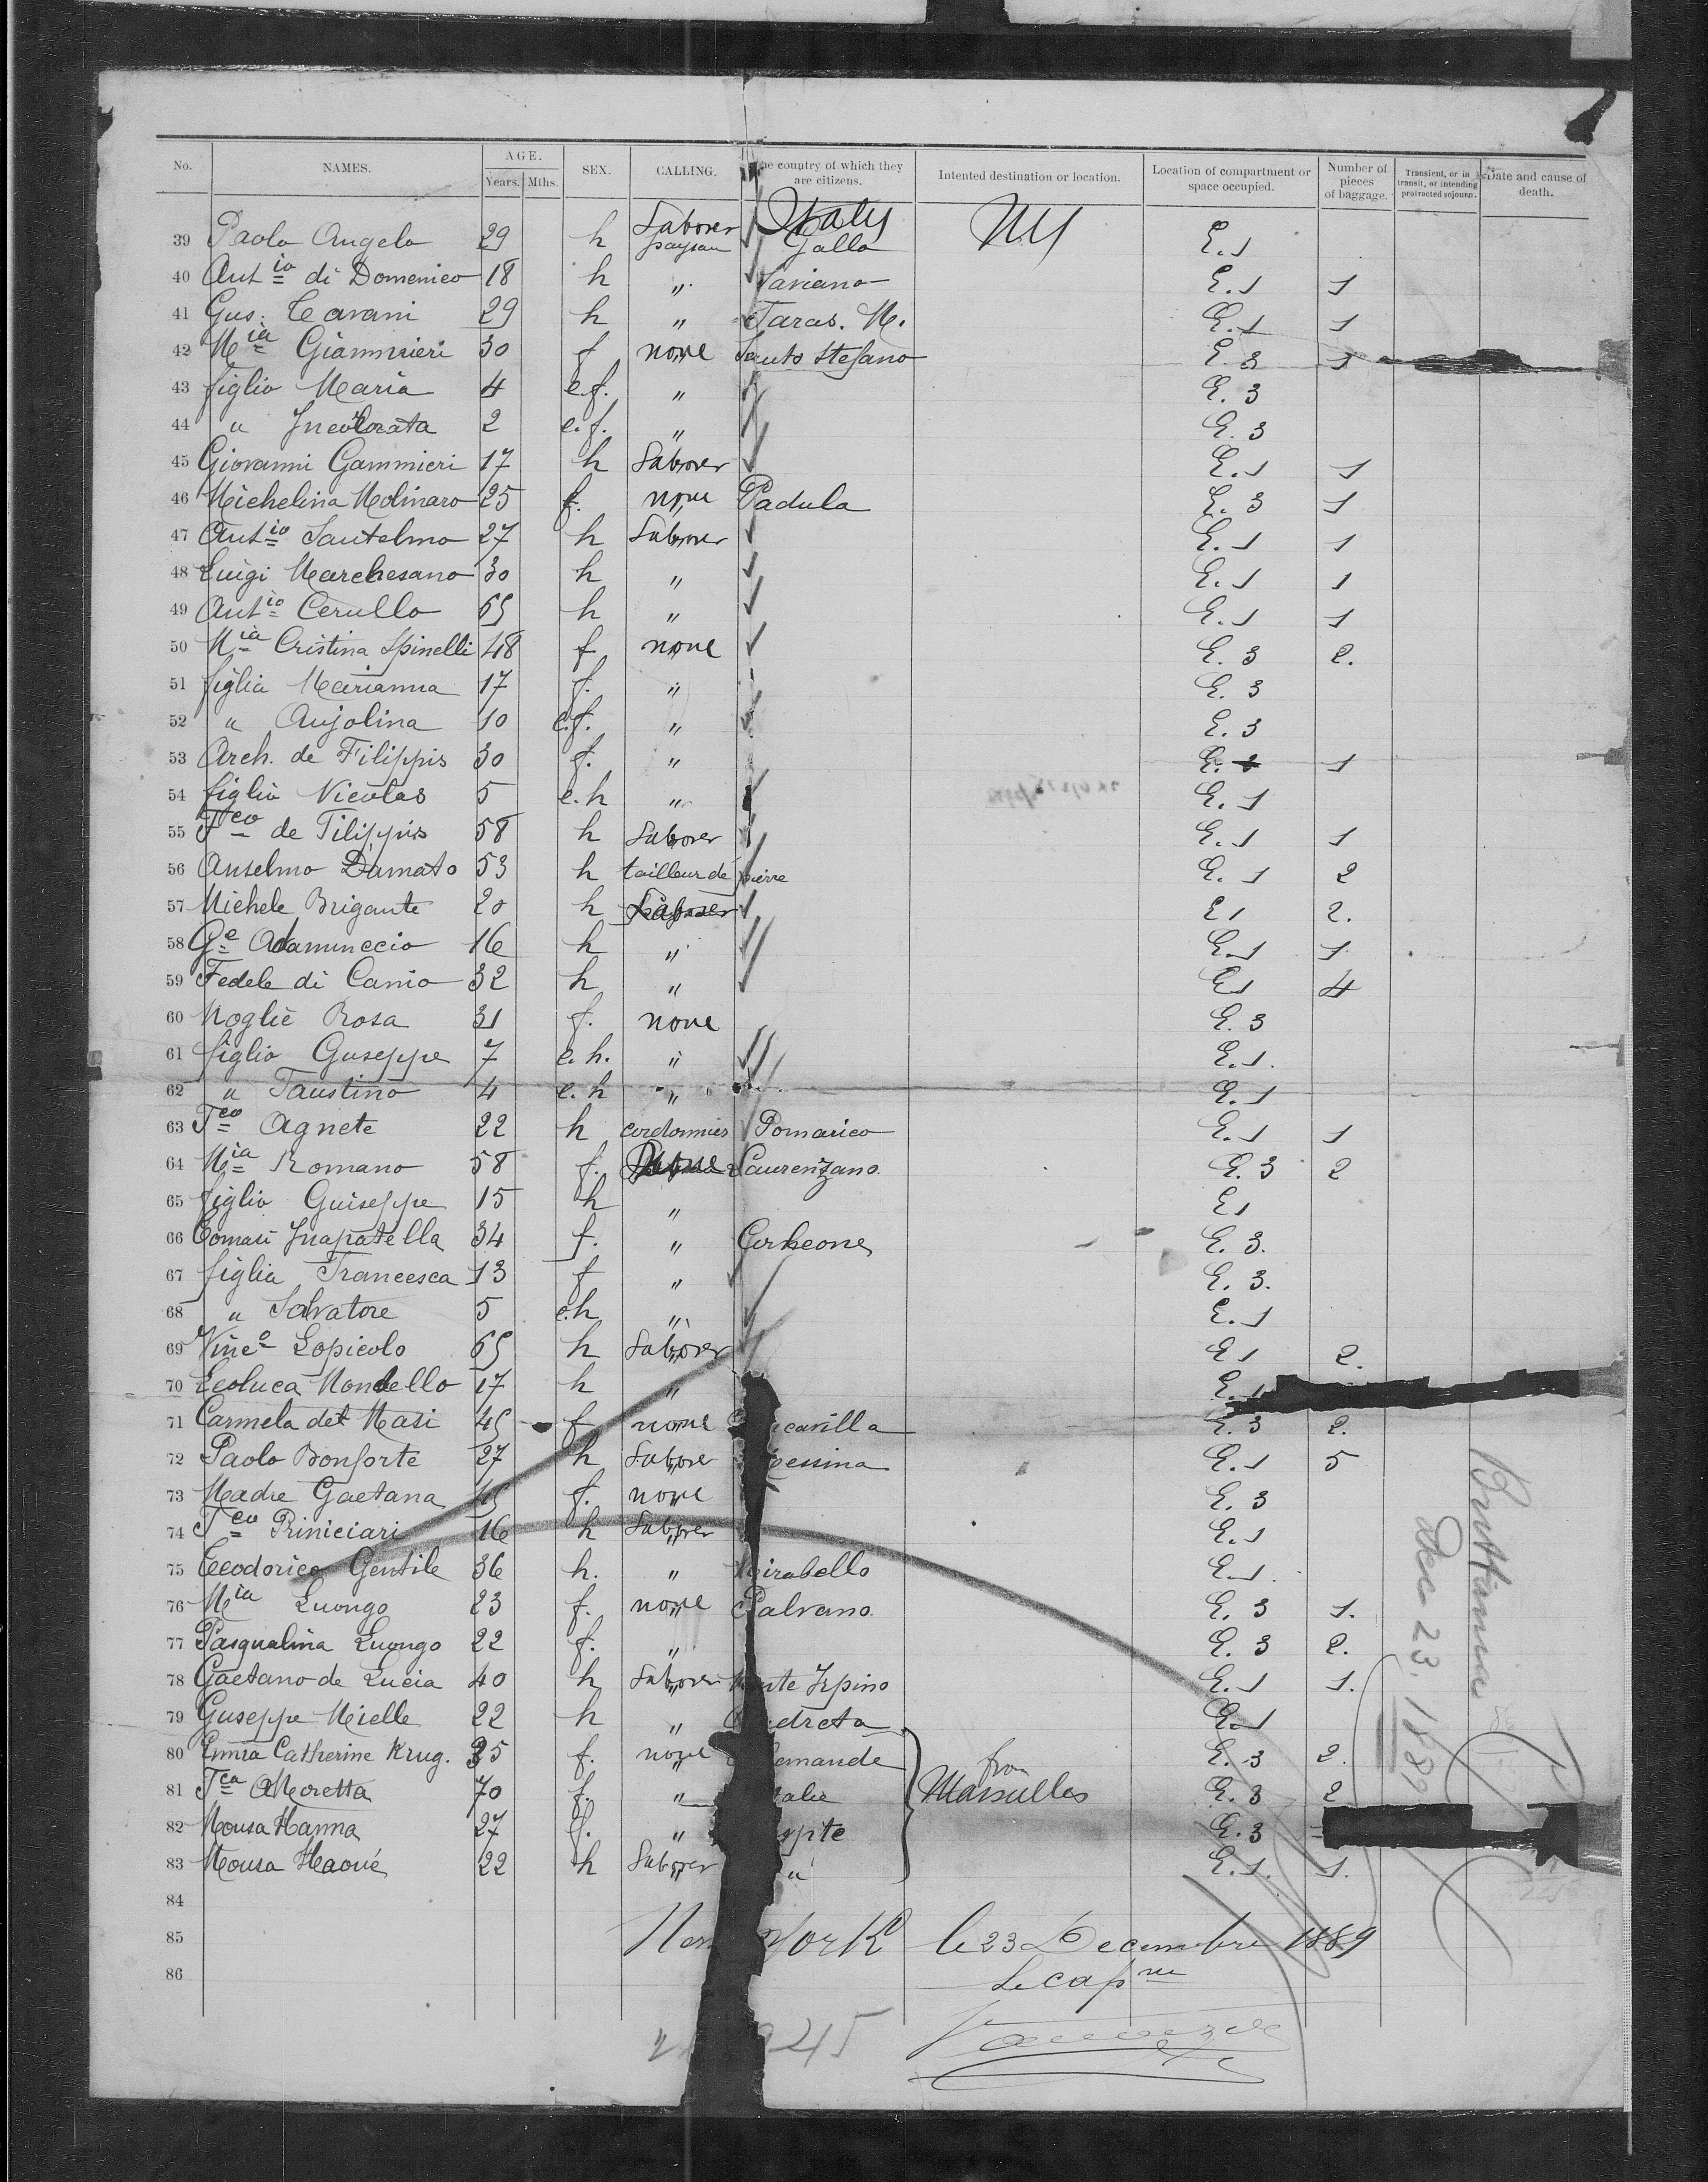 No. NAMES. AGE. Years. Mths. SEX. CALLING. country of which they are citizens. Intented destination or location. Location of compartment or space occupied. Number of pieces of baggage. Transient, or in transit, or intending protracted sojourn. Date and cause of death.
39 Paolo Angelo 29 h Laborer paysan Italy Gallo NY E. 1
40 Ant io di Domenico 18 h " Saviano E. 1 1
41 Gus. Cavani 29 h " Taras. M. E. 1 1
42 M ia Giammieri 30 f none Santo Stefano E 3 1
43 figlio Maria 4 e.f. " E. 3
44 " 2 e.f. " E. 3
45 Giovanni Gammieri 17 h Laborer E. 1 1
46 Michelina Molinaro 25 f. none Padula E. 3 1
47 Ant io Santelmo 27 h Laborer E. 1 1
48 Luigi Marchesano 30 h " E. 1 1
49 Ant io Cerullo 65 h " E. 1 1
50 M ia Cristina Spinelli 48 f none E. 3 2.
51 figlia Marianna 17 f. " E. 3
52 " Anjolina 10 e.f. " E. 3
53 Arch. de Filippis 30 f. " E. 1
54 figlio Nicolas 5 e.h " E. 1
55 F co de Filippis 58 h Laborer E. 1 1
56 Anselmo Damato 53 h tailleur de pierre E. 1 2
57 Michele Brigante 20 h Laborer E 1 2.
58 G e Adamuccio 16 h " E. 1 1.
59 Fedele di Canio 32 h " E 1 4
60 Moglie Rosa 31 f. none E. 3
61 figlio Guseppe 7 e.h. " E. 1.
62 " Faustino 4 e.h " E. 1
63 F co Agnete 22 h cordonnies Pomarico E. 1 1
64 M ia Romano 58 f. Laurenzano. E. 3 2
65 figlio Guiseppe 15 h " E 1
66 Comasi 34 f. " E. 3.
67 figlia Francesca 13 f " E. 3.
68 " Salvatore 5 e.h " E. 1
69 Vinc o Lopicolo 65 h Laborer E 1 2.
70 Leoluca Mondello 17 h " E. 1
71 Carmela del Masi 45 f none carilla E. 3 2.
72 Paolo Bonforte 27 h Laborer essina E. 1 5
73 Madre Gaetana 45 f. none E. 3
74 F co Piniciari 16 h Laborer E. 1
75 Teodorico Gentile 36 h. " irabello E. 1.
76 M ia Luongo 23 f. none Calvano. E. 3 1.
77 Pasqualina Luongo 22 f. " E. 3 2.
78 Gaetano de Lucia 40 h Laborer nte Irpino E. 1 1.
79 Guseppe Mielle 22 h " dreta E. 1
80 Emma Catherine Krug. 35 f. none emande E. 3 2.
81 F ca Moretta 70 f. " alie from Marseilles E. 3 2
82 Mousa Hanna 27 f. " ypte E. 3
83 Mousa Haoué 22 h Laborer " E. 1. 1.
84
85 New York le 23 Decembre 1889
86 Le cap ne
245
Brittannia
Dec 23. 1889